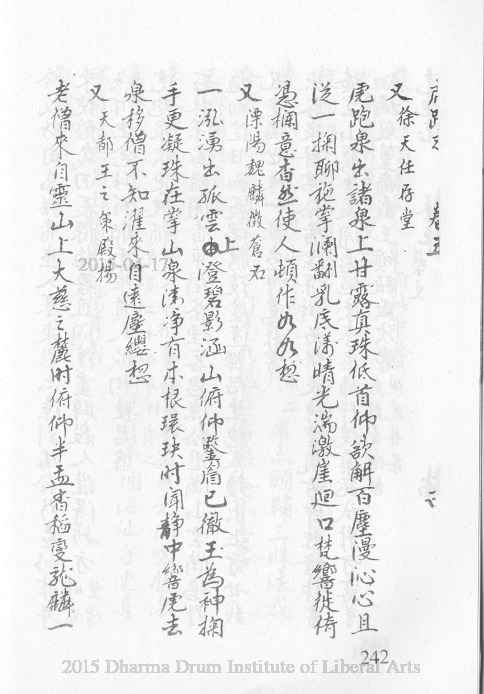 虎跑志 卷五
又 徐天任存堂
虎跑泉出諸泉上甘露真珠低首仰欲解百塵漫沁心且
從一掬聊施掌瀾翻乳底漾晴光湍激崖迴口梵響徙倚
憑欄意杳然使人頓作九九想
又 溧陽魏麟徵蒼石
一泓湧出孤雲上澄碧影涵山俯仰鑒眉已徹玉為神掬
手更凝珠在掌山泉清淨有本根環玦时闻靜中響虎去
泉移僧不知濯來自遠塵纓想
又 天都王之策殿揚
老僧來自靈山上大慈之麓时俯仰半盂香稻變龍麟一
2015-04-17
242
2015 Dharma Drum Institute of Liberal Arts